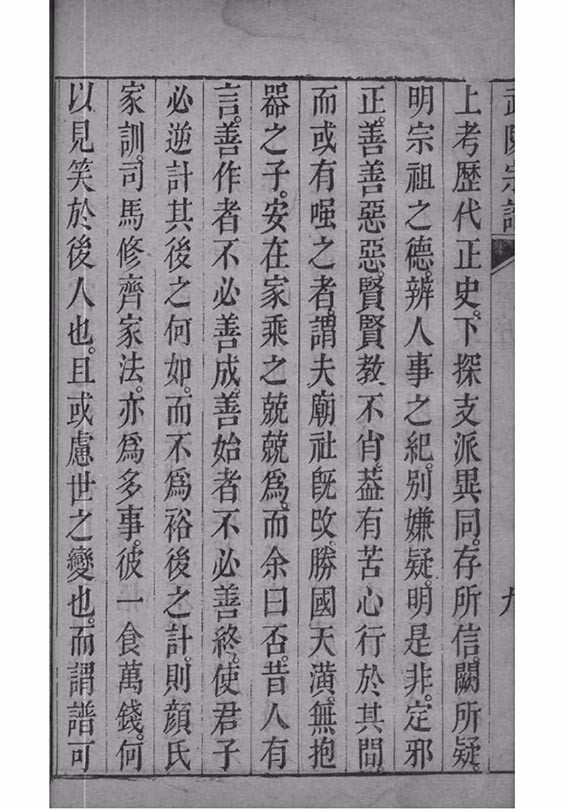 宗譜
九
上考歷代正史。下探支派異同。存所信。闕所疑。
明宗祖之德。辨人事之紀。別嫌疑。明是非。定邪
正。善善惡惡。賢賢教不肖。葢有苦心行於其間。
而或有嗤之者。謂夫廟社旣改。勝國天潢。無抱
器之子。安在家乘之兢兢爲。而余曰否。昔人有
言。善作者不必善成。善始者不必善終。使君子
必逆計其後之何如。而不爲裕後之計。則顏氏
家訓。司馬修齊家法。亦爲多事。彼一食萬錢。何
以見笑於後人也。且或慮世之變也。而謂譜可